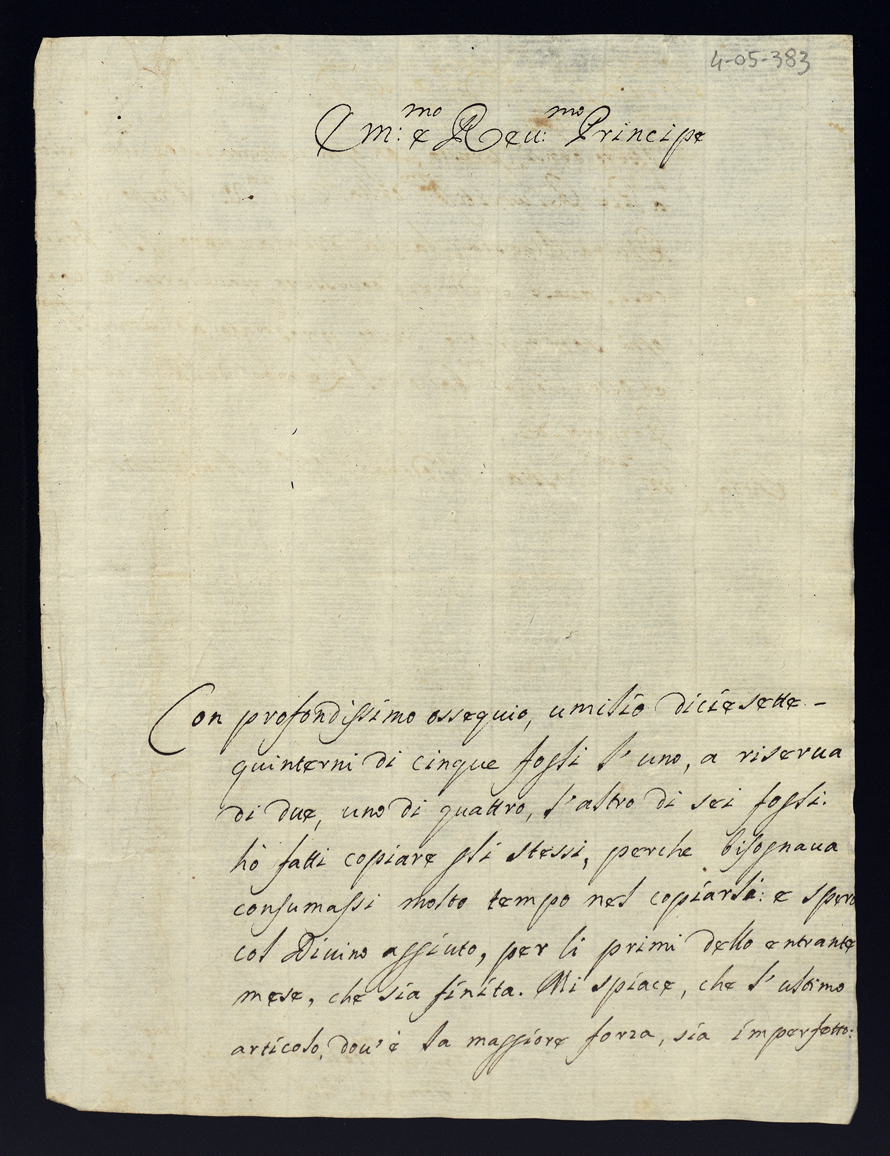 4-05-383
Em:mo e Reu:mo Principe
Con profondissimo ossequio, umilio diciesette-
quinterni di cinque fogli l'uno, a riserua
di due, uno di quattro, l'altro di sei fogli.
hò fatti copiare gli stessi, perche bisognaua
consumassi molto tempo nel copiarli: e spero
col Diuino aggiuto, per li primi dello entrante
mese, che sia finita. Mi spiace, che l'ultimo
articolo, dou'è la maggiore forza, sia imperfetto: